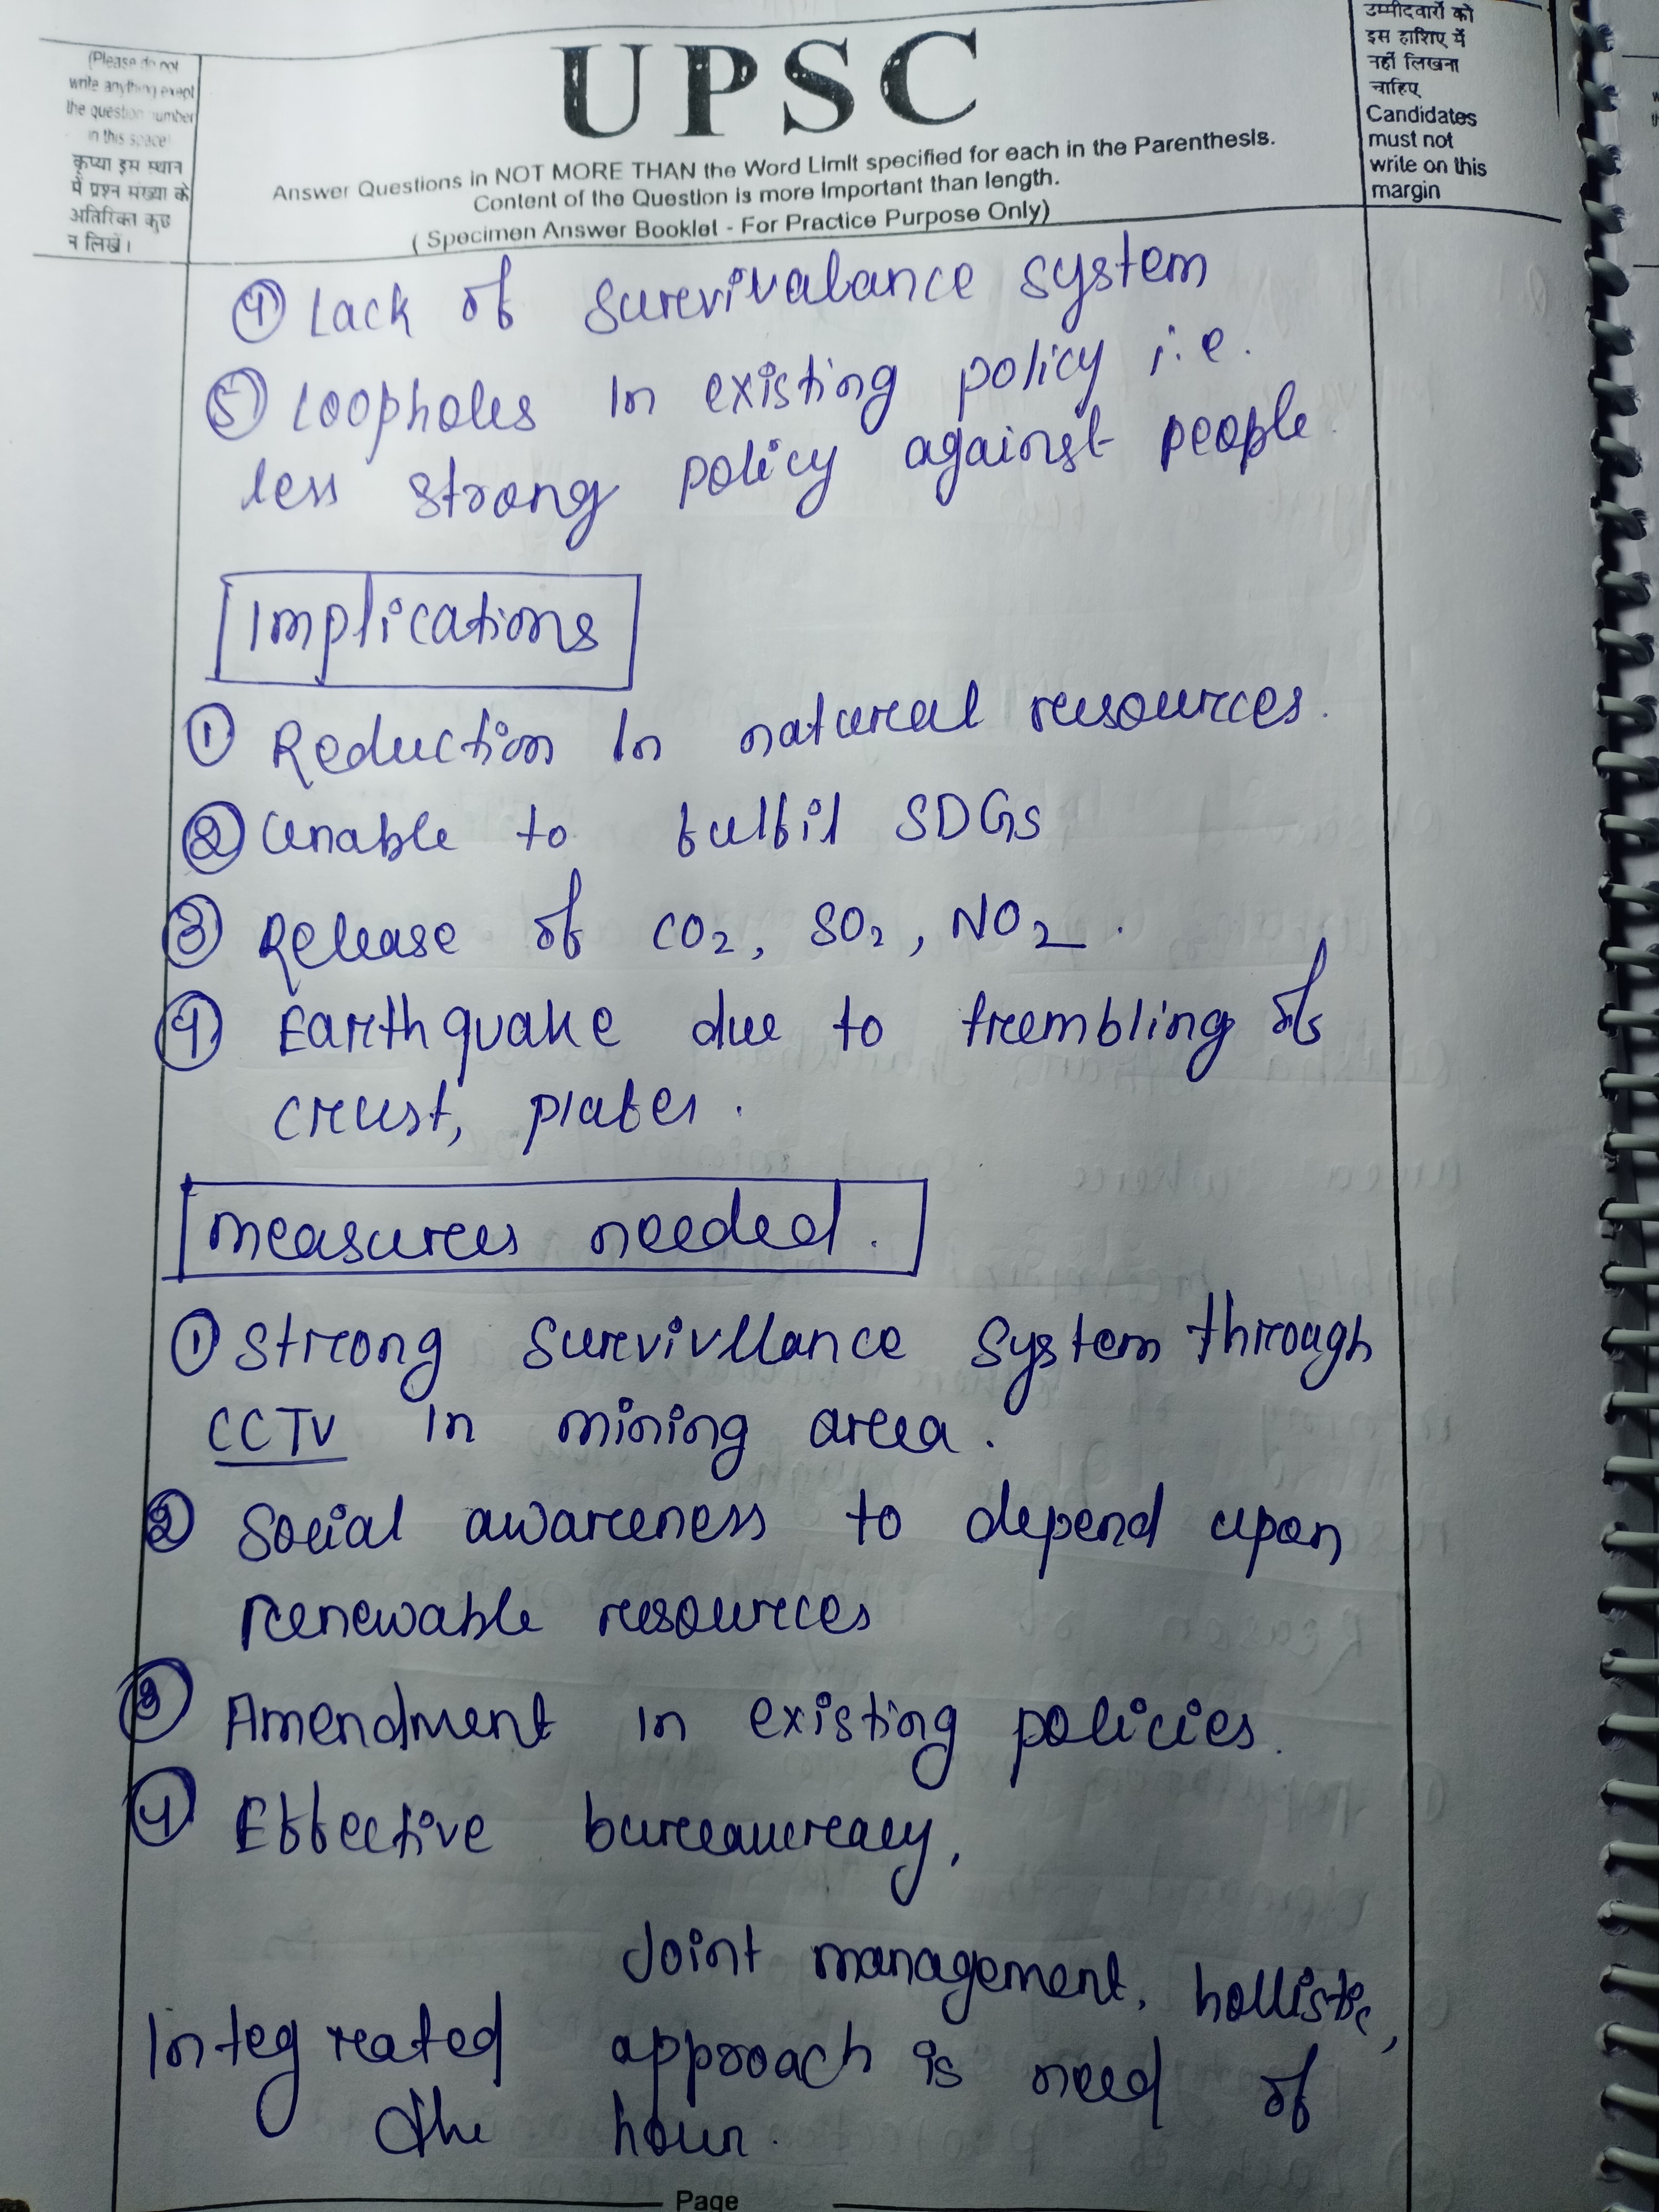 (Please do not
write anything exept
the question number
in this space)
कृप्या इस स्थान
में प्रश्न संख्या के
अतिरिक्त कुछ
न लिखें।
UPSC
Answer Questions in NOT MORE THAN the Word Limit specified for each in the Parenthesis.
Content of the Question is more Important than length.
( Specimen Answer Booklet - For Practice Purpose Only)
उम्मीदवारों को
इस हाशिए में
नहीं लिखना
चाहिए
Candidates
must not
write on this
margin
④ Lack of survivalance system
⑤ Loopholes in existing policy i.e.
less strong policy against people
Implications
① Reduction in natural resources.
② Unable to fulfil SDGs
③ Release of CO₂, SO₂, NO₂.
④ Earthquake due to trembling of
crust, plates.
Measures needed.
① Strong survivllance system through
CCTV in mining area.
② Social awareness to depend upon
renewable resources
③ Amendment in existing policies.
④ Effective bureaucracy,
Joint management, hollistic,
Integrated approach is need of
the hour.
Page